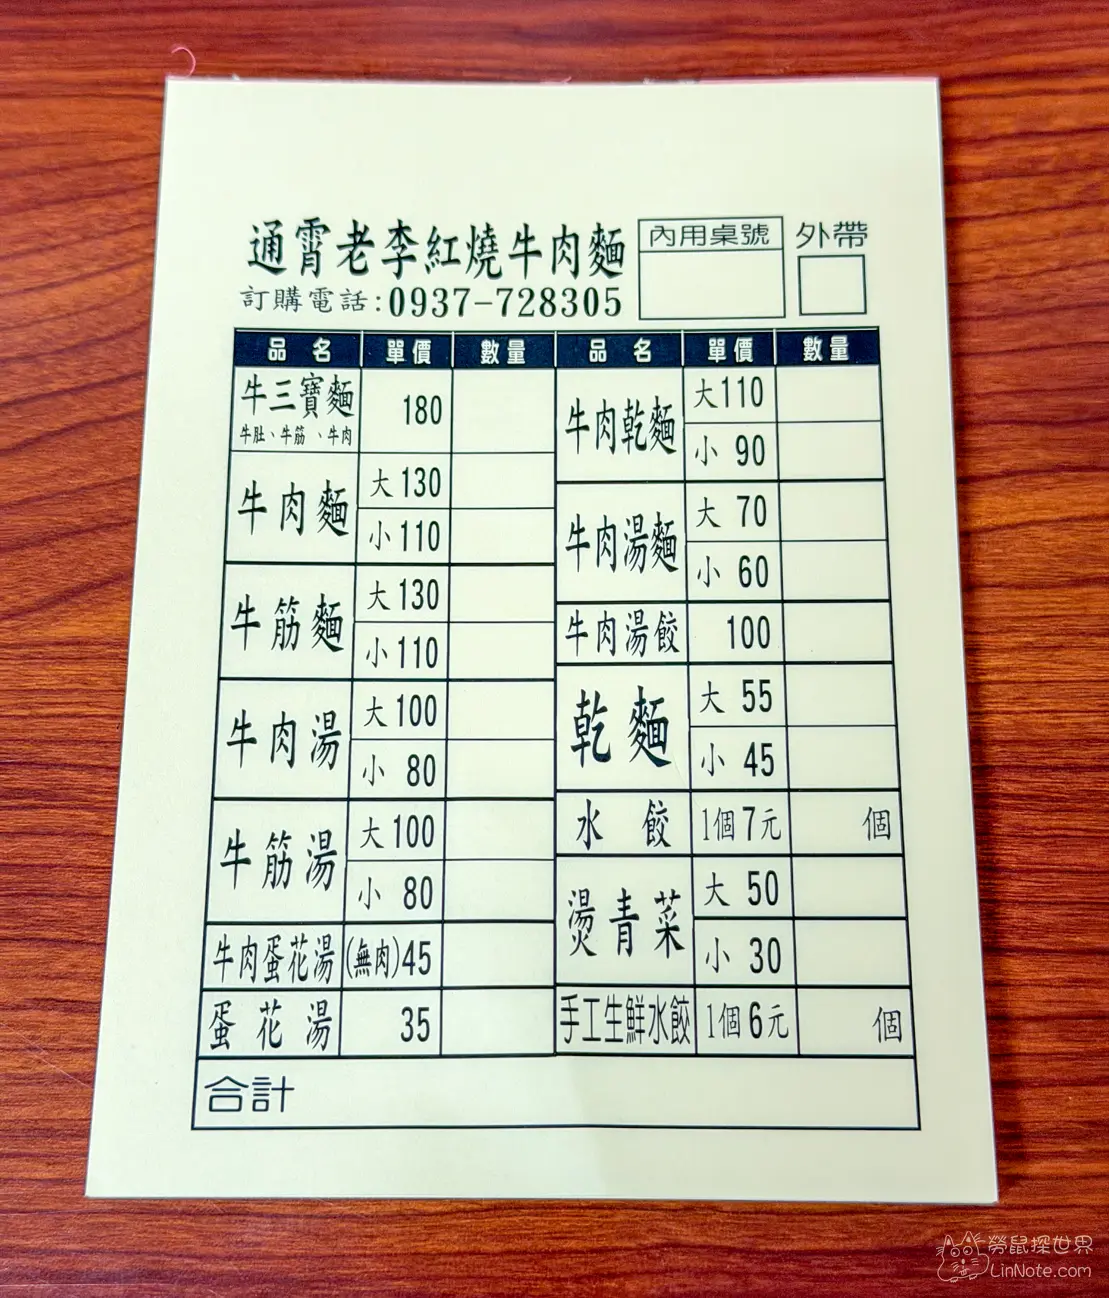 通霄老李紅燒牛肉麵
訂購電話:0937-728305
內用桌號
外帶
品名 單價 數量 品名 單價 數量
牛三寶麵 180
牛肚、牛筋、牛肉
牛肉麵 大130
小110
牛筋麵 大130
小110
牛肉湯 大100
小 80
牛筋湯 大100
小 80
牛肉蛋花湯 (無肉)45
蛋花湯 35
牛肉乾麵 大110
小 90
牛肉湯麵 大 70
小 60
牛肉湯餃 100
乾麵 大 55
小 45
水餃 1個7元 個
燙青菜 大 50
小 30
手工生鮮水餃 1個6元 個
合計
勞鼠探世界
LinNote.com